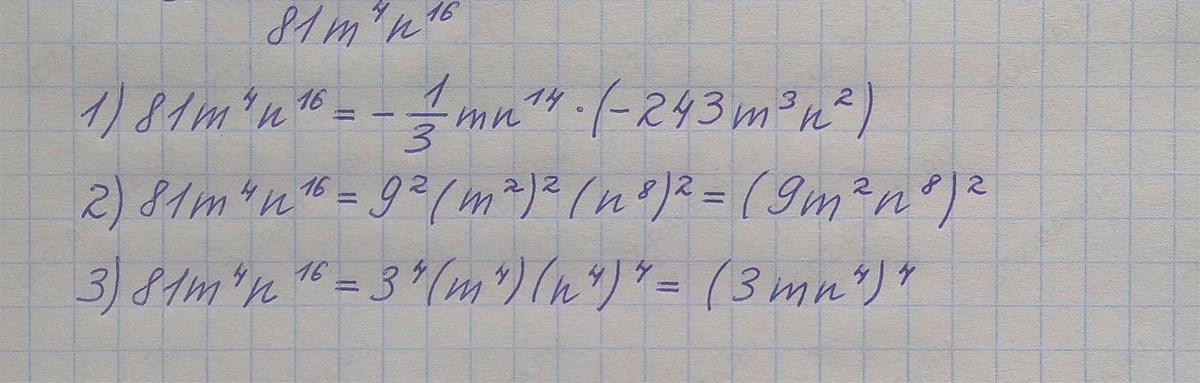 81m⁴n¹⁶
1) 81m⁴n¹⁶ = -1/3 mn¹⁴ · (-243m³n²)
2) 81m⁴n¹⁶ = 9²(m²)²(n⁸)² = (9m²n⁸)²
3) 81m⁴n¹⁶ = 3⁴(m⁴)(n⁴)⁴ = (3mn⁴)⁴